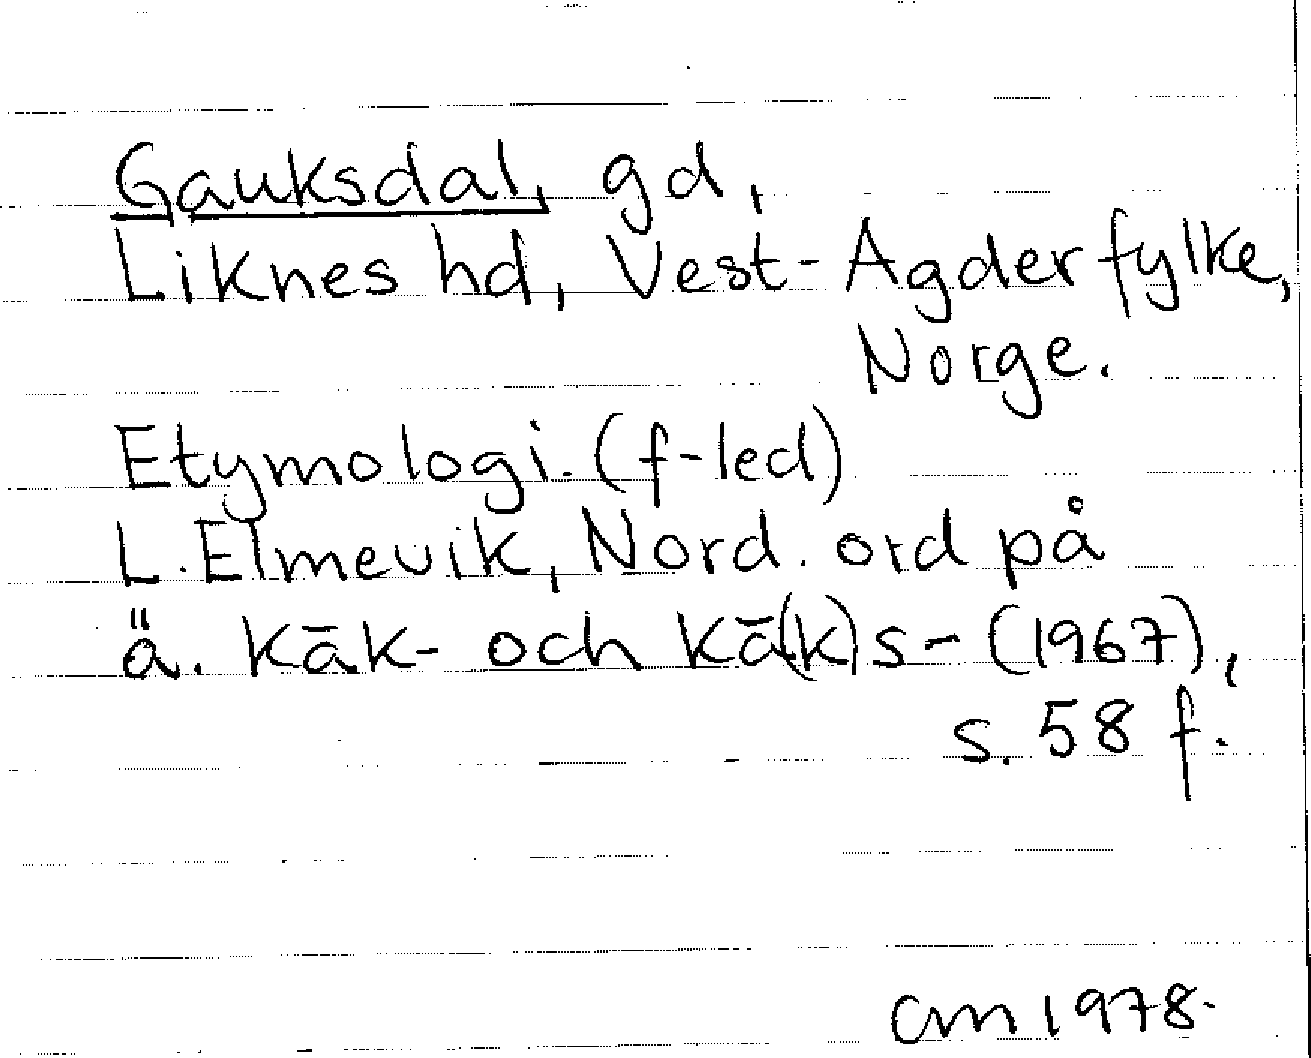 Gauksdal, gd,
Liknes hd, Vest-Agder fylke,
Norge.
Etymologi. (f-led)
L. Elmevik, Nord. ord på
ä. kāk- och kā(k)s- (1967),
s. 58 f.
CM 1978.